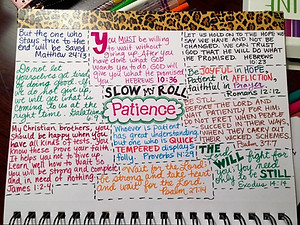 But the one who
stays true to the
end will be saved.
Matthew 24:13
You MUST be willing
to wait without
giving up. After you
have done what God
wants you to do, God will
give you what He promised
you. HEBREWS 10:36
LET US HOLD ON TO THE HOPE WE
SAY WE HAVE AND NOT BE
CHANGED. WE CAN TRUST
GOD THAT HE WILL DO WHAT
HE PROMISED. HEBREWS
10:23
Do not let
yourselves get tired
of doing good. If
we do not give up,
we will get what is
coming to us at the
right time. Galatians
SLOW MY ROLL
Patience
BE JOYFUL IN HOPE,
Patient IN AFFLICTION,
faithful IN Prayer.
Romans 12:12
BE STILL
BEFORE THE LORD AND
WAIT PATIENTLY FOR HIM;
DO NOT FRET WHEN PEOPLE
SUCCEED IN THEIR WAYS,
WHEN THEY CARRY OUT
THEIR WICKED SCHEMES.
Psalm 37:7
My Christian brothers, you
should be happy when you
have all kinds of tests. You
know these prove your faith.
It helps you not to give up.
Learn well how to wait so
you will be strong and complete
and in need of nothing.
James 1:2-4
Whoever is Patient
has great understanding,
but one who is QUICK
TEMPERED displays
folly. Proverbs 14:29
Wait for the Lord;
be strong and take heart
and wait for the Lord.
Psalm 27:14
THE LORD
WILL fight for
you; you need
only to be STILL
Exodus 14:14